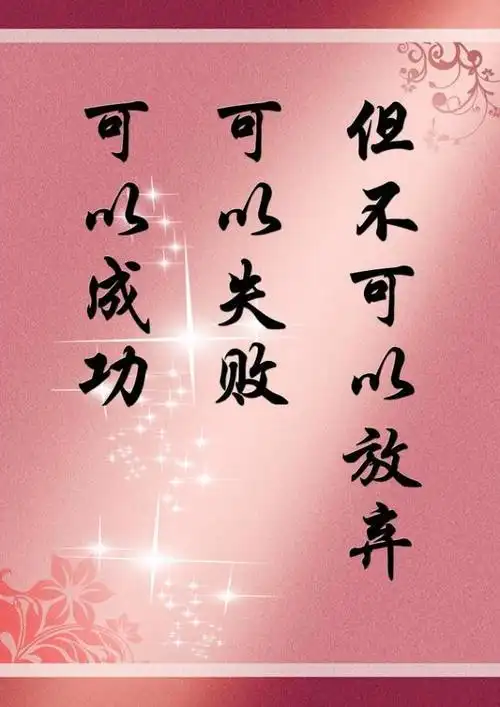 可以成功
可以失败
但不可以放弃